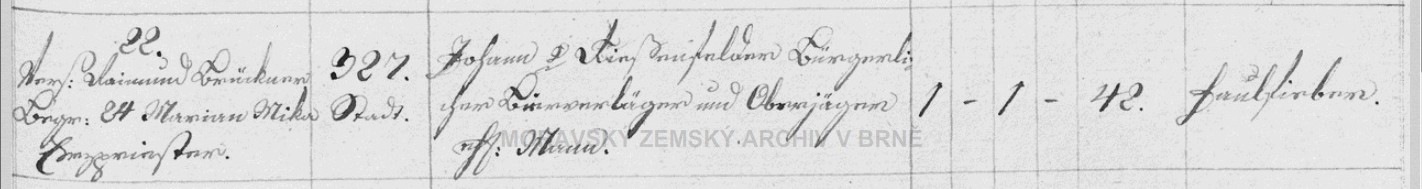 22.
Vers: Raimund Brückner
Begr: 24 Marian Mika
Expriester.
327.
Stadt.
Johann Kiessenfelder Bürgerli
cher Bierverläger und Oberjäger
ehl: Mann.
1 - 1 - 42. Faulfieber.
MORAVSKÝ ZEMSKÝ ARCHIV V BRNĚ